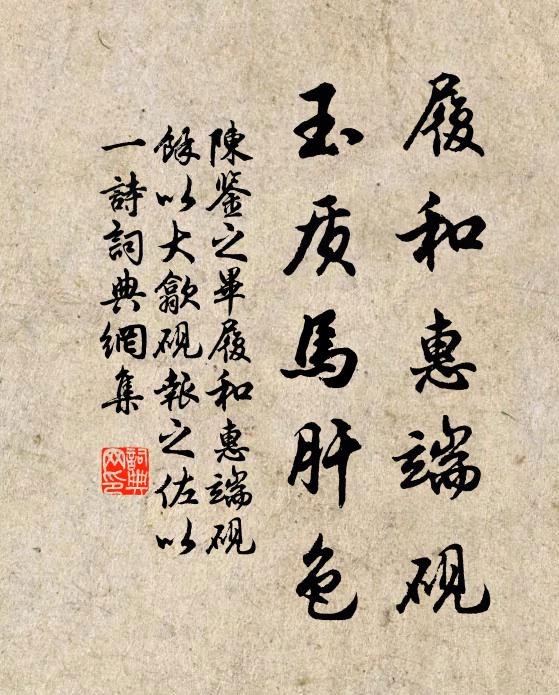 履和惠端硯
玉质馬肝色
陳鉴之畢履和惠端硯
餘以大歙硯報之佐以
一詩詞典網集
詞典
网印